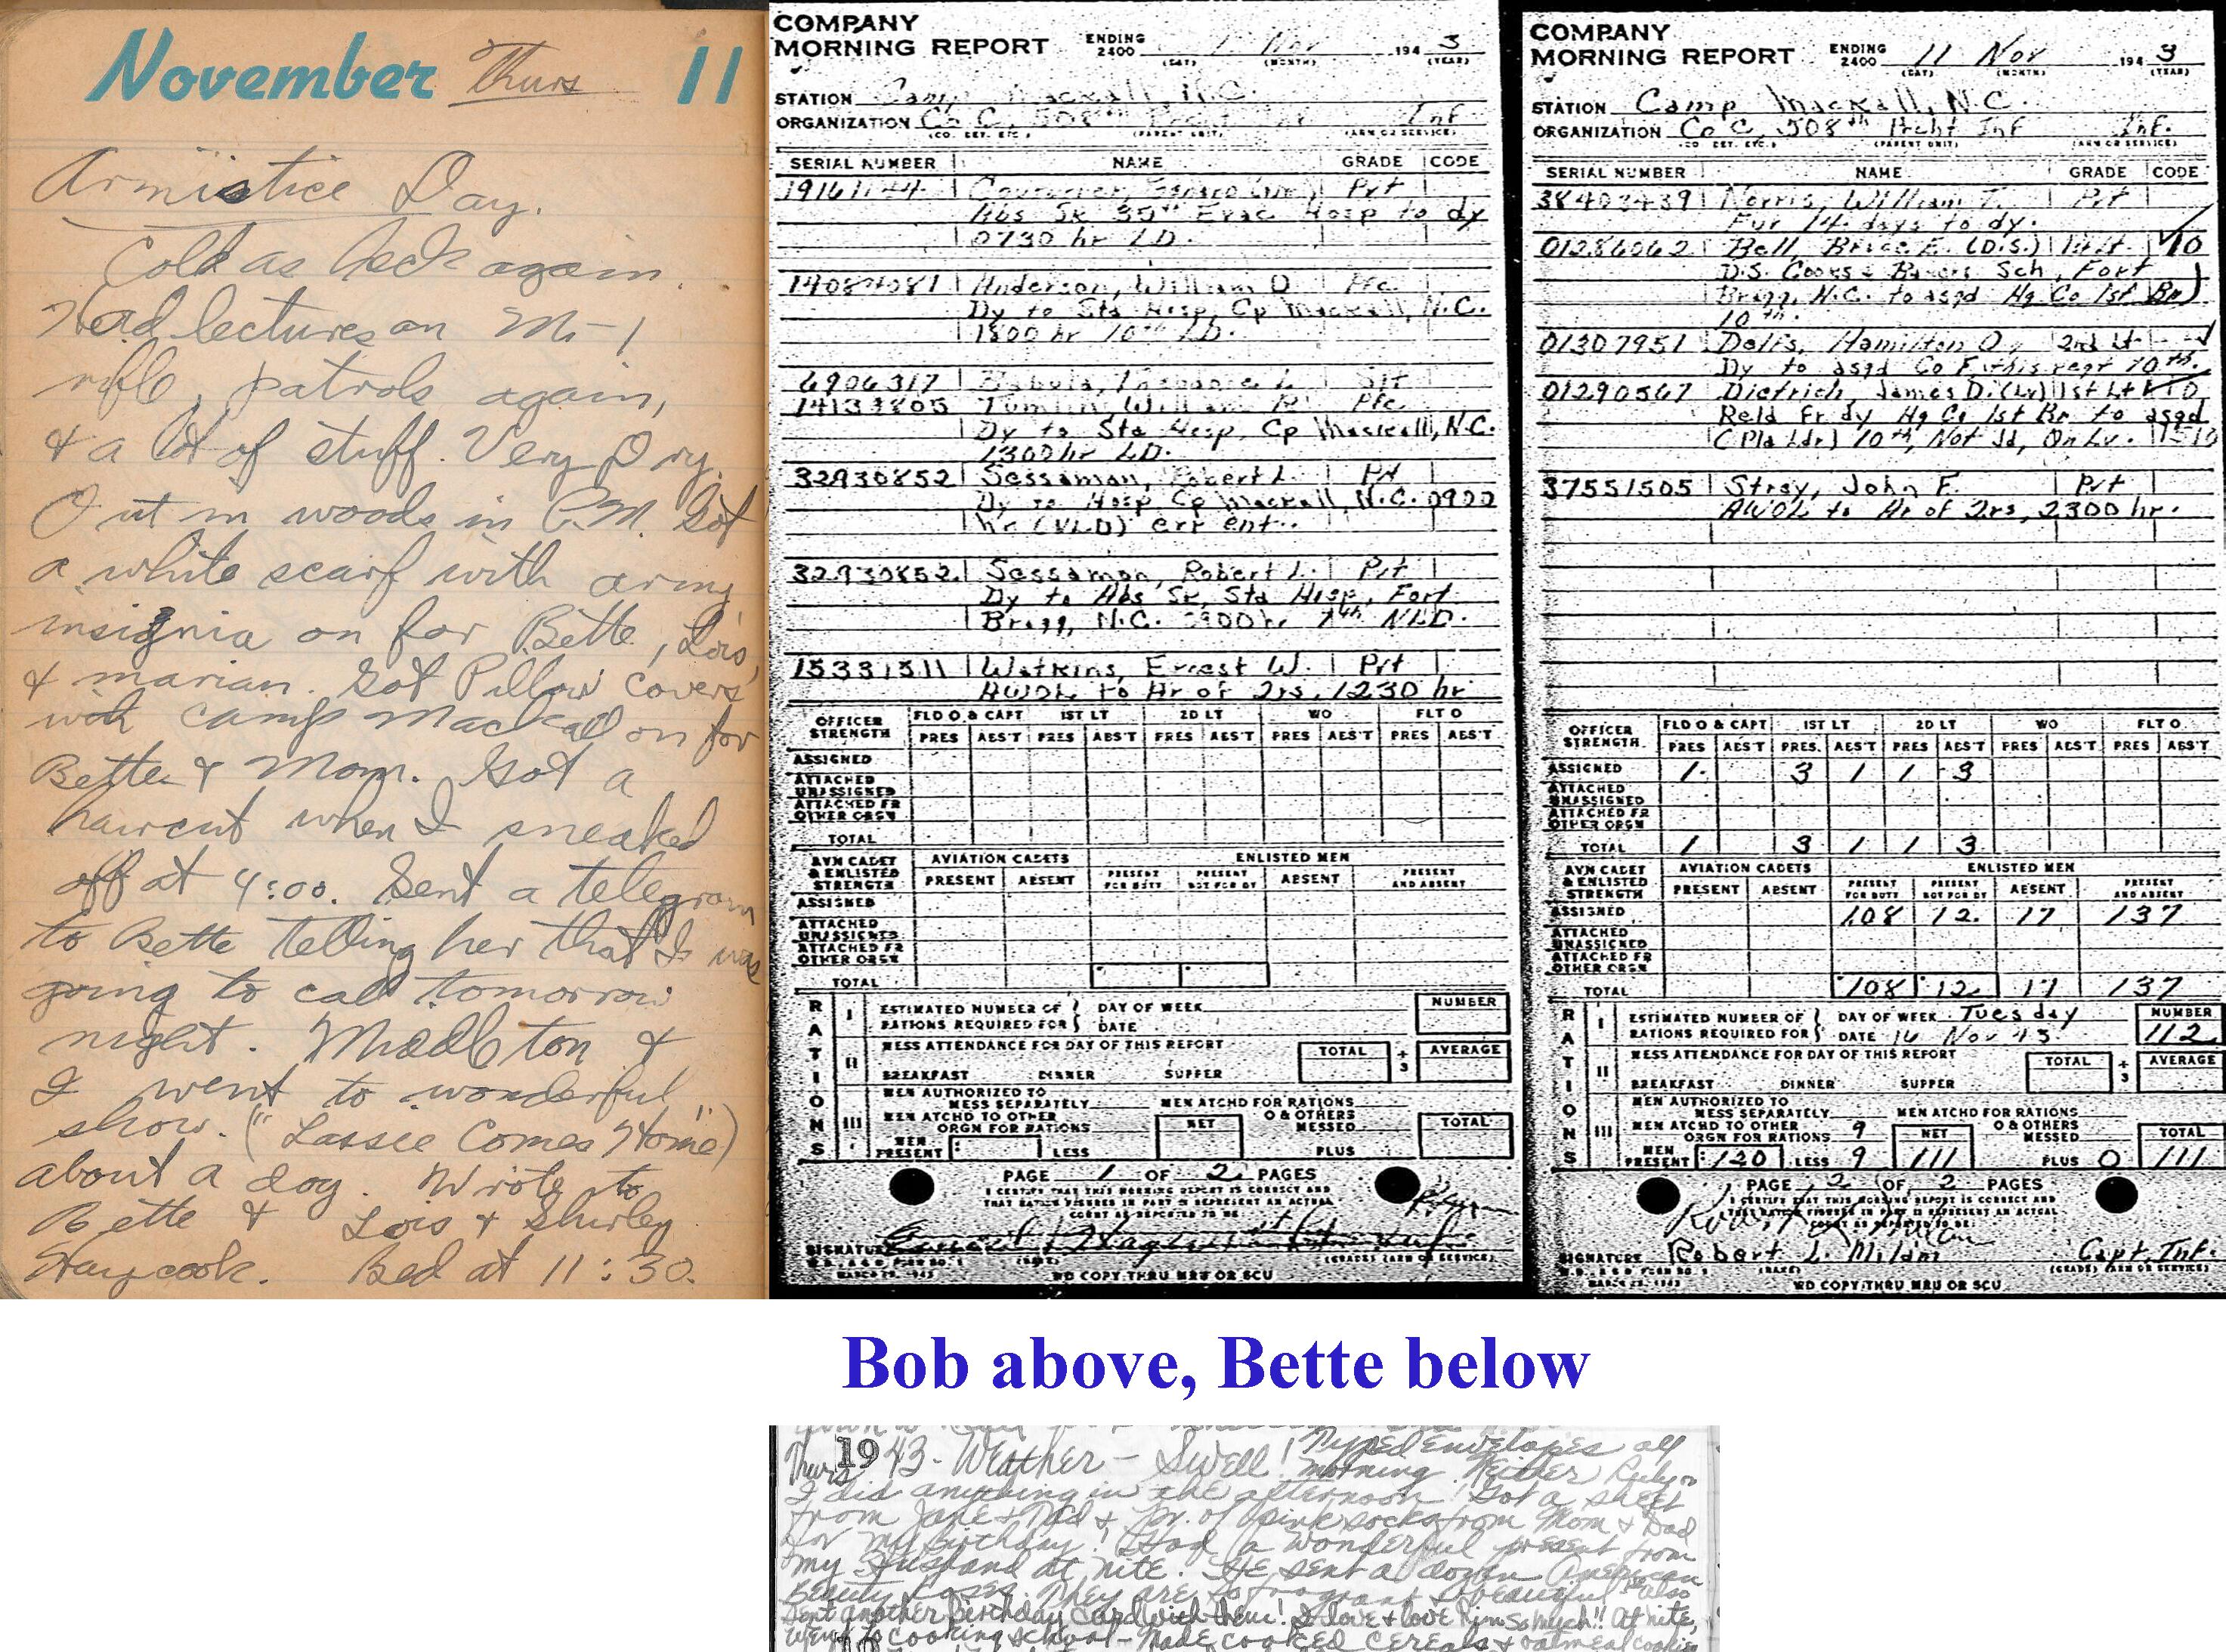 November Thurs 11
Armistice Day.
Cold as heck again.
Had lectures on M-1
rifle, patrols again,
& a lot of stuff. Very Dry.
Out in woods in P.M. Got
a white scarf with army
insignia on for Bette, Lois,
& marian. Got Pillow covers
with Camp Mackall on for
Bette & Mom. Got a
haircut when I sneaked
off at 4:00. Sent a telegram
to Bette telling her that I was
going to call tomorrow
night. Middleton &
I went to wonderful
show. ("Lassie Comes Home")
about a dog. Wrote to
Bette & Lois & Shirley
Haycook. Bed at 11:30.
COMPANY
MORNING REPORT ENDING 2400 Nov 194 3
(DAY) (MONTH) (YEAR)
STATION Camp Mackall N.C.
ORGANIZATION Co C, 508th Inf
(CO. DET. ETC.) (PARENT UNIT) (ARM OR SERVICE)
SERIAL NUMBER NAME GRADE CODE
Pvt
Abs Sk 35th Evac Hosp to dy
0730 hr LD.
14084081 Anderson, William O Pfc
Dy to Sta Hosp, Cp Mackall, N.C.
1800 hr 10th LD.
6906317
14133805 Pfc
Dy to Sta Hosp, Cp Mackall, N.C.
1300 hr LD.
32930852 Sessaman, Robert L. Pvt
Dy to Hosp Cp Mackall, N.C. 0900
hr (VLD) err ent.
32930852 Sessaman, Robert L. Pvt
Dy to Abs Sk, Sta Hosp, Fort
Bragg, N.C. NLD.
15331511 Watkins, Ernest W. Pvt
AWOL to Ar of Qrs, 1230 hr
OFFICER STRENGTH FLD O & CAPT 1ST LT 2D LT WO FLT O
PRES ABS'T PRES ABS'T PRES ABS'T PRES ABS'T PRES ABS'T
ASSIGNED
ATTACHED UNASSIGNED
ATTACHED FR OTHER ORGN
TOTAL
AVN CADET & ENLISTED STRENGTH AVIATION CADETS ENLISTED MEN
PRESENT ABSENT PRESENT FOR DUTY PRESENT NOT FOR DY ABSENT PRESENT AND ABSENT
ASSIGNED
ATTACHED UNASSIGNED
ATTACHED FR OTHER ORGN
TOTAL
RATIONS
I ESTIMATED NUMBER OF RATIONS REQUIRED FOR DAY OF WEEK DATE NUMBER
II MESS ATTENDANCE FOR DAY OF THIS REPORT TOTAL ÷ 3 AVERAGE
BREAKFAST DINNER SUPPER
III MEN AUTHORIZED TO MESS SEPARATELY MEN ATCHD FOR RATIONS
MEN ATCHD TO OTHER ORGN FOR RATIONS NET & OTHERS MESSED TOTAL
MEN PRESENT LESS PLUS
PAGE 1 OF 2 PAGES
I CERTIFY THAT THIS MORNING REPORT IS CORRECT AND
THAT RATION FIGURES IN PART III REPRESENT AN ACTUAL
COUNT AS REPORTED TO ME.
SIGNATURE
(NAME) (GRADE) (ARM OR SERVICE)
W.D., A.G.O. FORM NO. 1
MARCH 29, 1943
WD COPY THRU MRU OR SCU
COMPANY
MORNING REPORT ENDING 2400 11 Nov 194 3
(DAY) (MONTH) (YEAR)
STATION Camp Mackall, N.C.
ORGANIZATION Co C, 508th Prcht Inf Inf.
(CO. DET. ETC.) (PARENT UNIT) (ARM OR SERVICE)
SERIAL NUMBER NAME GRADE CODE
38403439 Norris, William T. Pvt
Fur 14 days to dy.
01286062 Bell, Brice E. (D.S.) 1st Lt 10
D.S. Cooks & Bakers Sch, Fort
Bragg, N.C. to asgd Hq Co 1st Bn
10th.
01307951 Hamilton O. 2nd Lt
Dy to asgd Co F this regt 10th.
01290567 Dietrich, James D. (Lv) 1st Lt
Reld fr dy Hq Co 1st Bn to asgd
(Plt Ldr) 10th, Not Jd, On Lv. 1510
37551505 Stray, John F. Pvt
AWOL to Ar of Qrs, 2300 hr.
OFFICER STRENGTH FLD O & CAPT 1ST LT 2D LT WO FLT O
PRES ABS'T PRES. ABS'T PRES ABS'T PRES ABS'T PRES ABS'T
ASSIGNED 1 3 1 1 3
ATTACHED UNASSIGNED
ATTACHED FR OTHER ORGN
TOTAL 1 3 1 1 3
AVN CADET & ENLISTED STRENGTH AVIATION CADETS ENLISTED MEN
PRESENT ABSENT PRESENT FOR DUTY PRESENT NOT FOR DY ABSENT PRESENT AND ABSENT
ASSIGNED 108 12 17 137
ATTACHED UNASSIGNED
ATTACHED FR OTHER ORGN
TOTAL 108 12 17 137
RATIONS
I ESTIMATED NUMBER OF RATIONS REQUIRED FOR DAY OF WEEK Tuesday DATE Nov 43 NUMBER 112
II MESS ATTENDANCE FOR DAY OF THIS REPORT TOTAL ÷ 3 AVERAGE
BREAKFAST DINNER SUPPER
III MEN AUTHORIZED TO MESS SEPARATELY MEN ATCHD FOR RATIONS
MEN ATCHD TO OTHER ORGN FOR RATIONS 9 NET & OTHERS MESSED TOTAL
MEN PRESENT 120 LESS 9 111 PLUS 0 111
PAGE 2 OF 2 PAGES
I CERTIFY THAT THIS MORNING REPORT IS CORRECT AND
THAT RATION FIGURES IN PART III REPRESENT AN ACTUAL
COUNT AS REPORTED TO ME.
SIGNATURE Robert L. Milam Capt. Inf.
(NAME) (GRADE) (ARM OR SERVICE)
W.D., A.G.O. FORM NO. 1
MARCH 29, 1943
WD COPY THRU MRU OR SCU
Bob above, Bette below
Thurs 1943 - Weather - Swell! Typed envelopes all
morning. Neither Ruby or
I did anything in the afternoon! Got a sheet
from Jane & Tad & pr. of pink socks from Mom & Dad
for my birthday! Had a wonderful present from
my Husband at nite. He sent a dozen American
Beauty Roses. They are so fragrant & beautiful. He also
sent another birthday card with them! I love & love him so much!! At nite,
went to cooking school - Made cooked cereals & oatmeal cookies